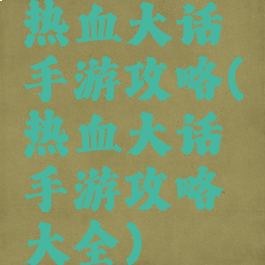 热血大话
手游攻略(
热血大话
手游攻略
大全)